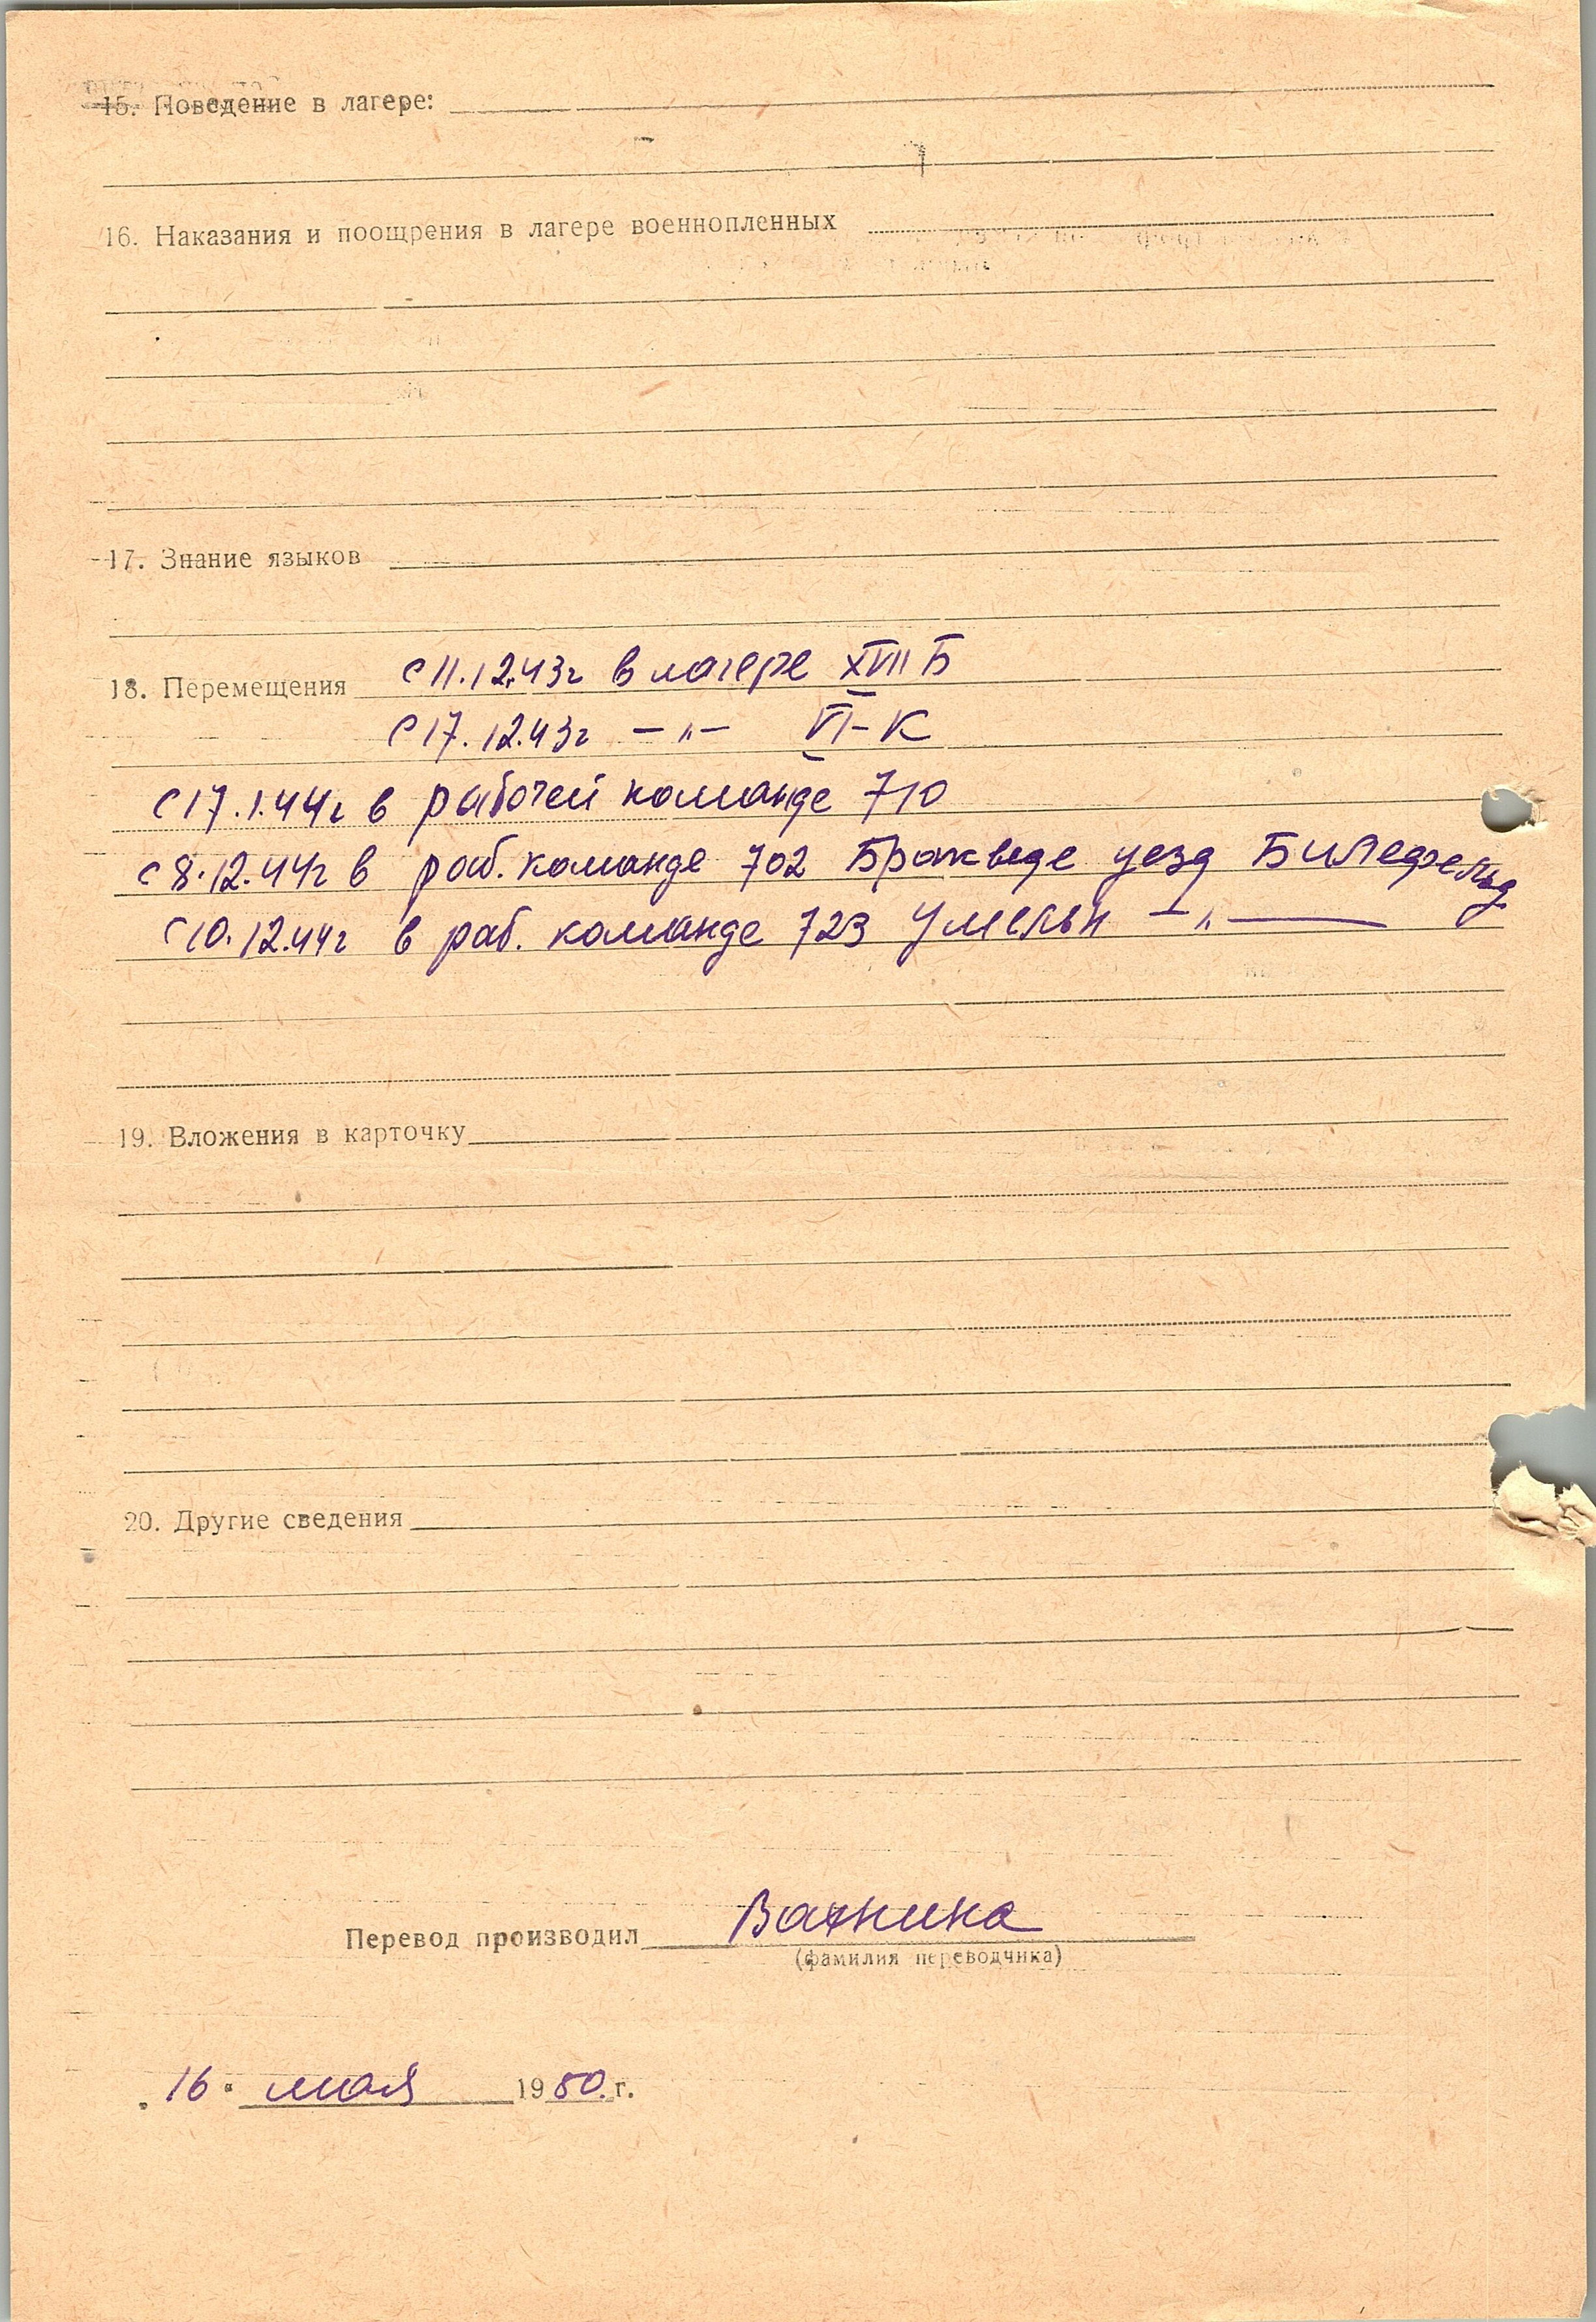 15. Поведение в лагере:
16. Наказания и поощрения в лагере военнопленных
17. Знание языков
18. Перемещения с 11.12.43г в лагере XVII Б
с 17.12.43г –„– VI-К
с 17.1.44г в рабочей команде 710
с 8.12.44г в раб. команде 702 Бракведе уезд Билефельд
с 10.12.44г в раб. команде 723 Умельн –„–
19. Вложения в карточку
20. Другие сведения
Перевод производил
(фамилия переводчика)
16 мая 1950.г.